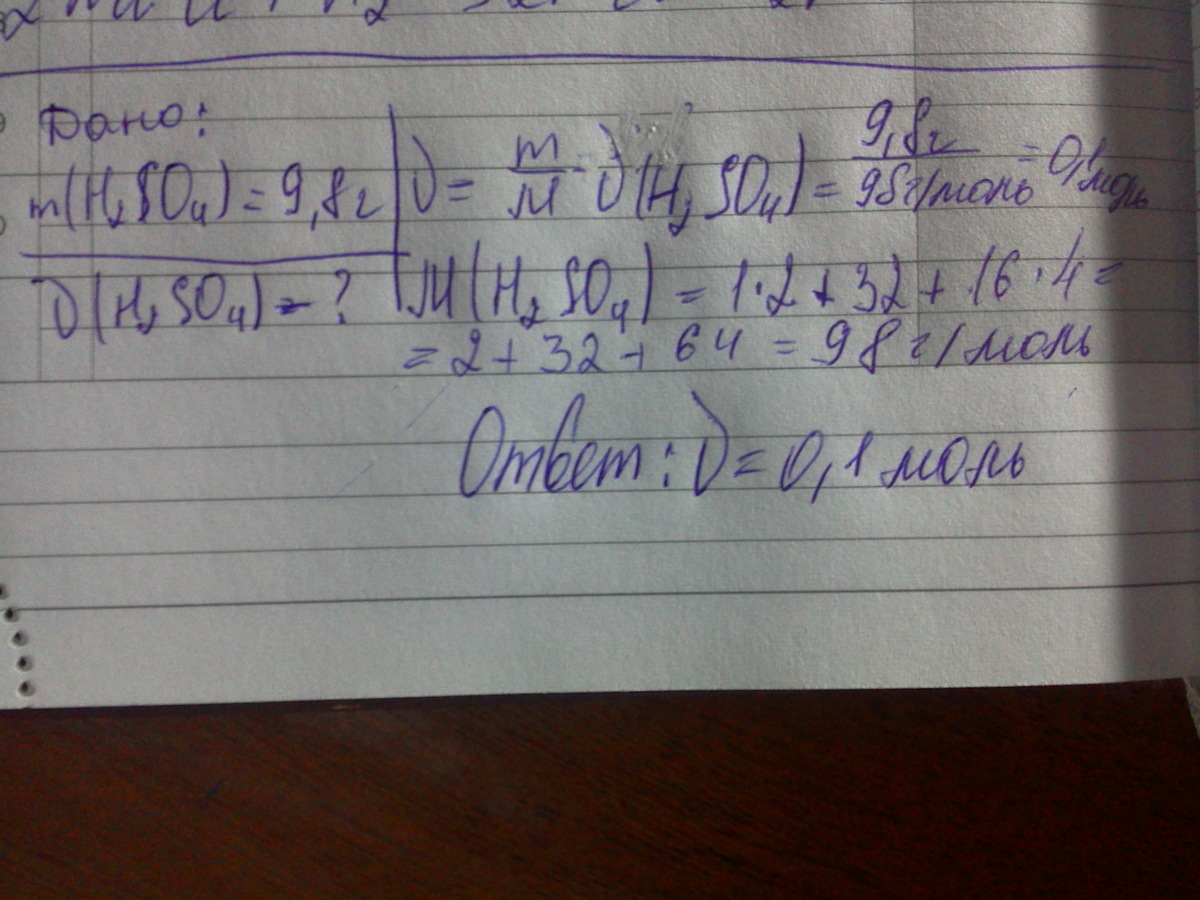 Дано:
m(H₂SO₄) = 9,8г
ν(H₂SO₄) - ?
ν = m/M ν(H₂SO₄) = 9,8г/98г/моль = 0,1моль
M(H₂SO₄) = 1·2 + 32 + 16·4 =
= 2 + 32 + 64 = 98 г/моль
Ответ: ν = 0,1 моль